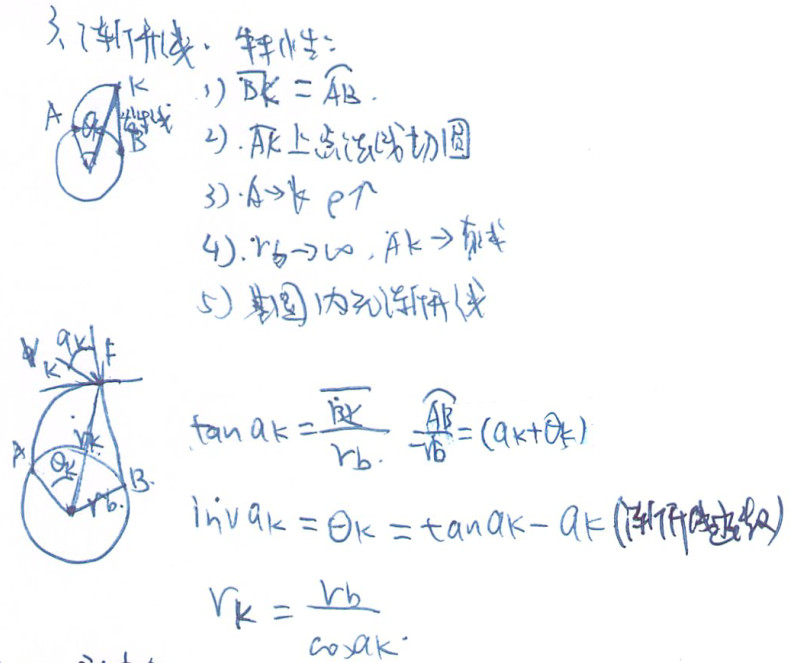 3、渐开线. 特性:
K
A
θk
发生线
B
1) B̅K̅ = A͡B.
2). A͡K上点法线切圆
3). A→k ρ↑
4). rb→∞, A͡k→直线
5) 基圆内无渐开线
Vk
αk
F
A
rk
θk
B.
rb.
tan αk = B̅K̅ / rb. A͡B / rb = (αk+θk)
inv αk = θk = tan αk − αk (渐开线函数)
rk = rb / cos αk.